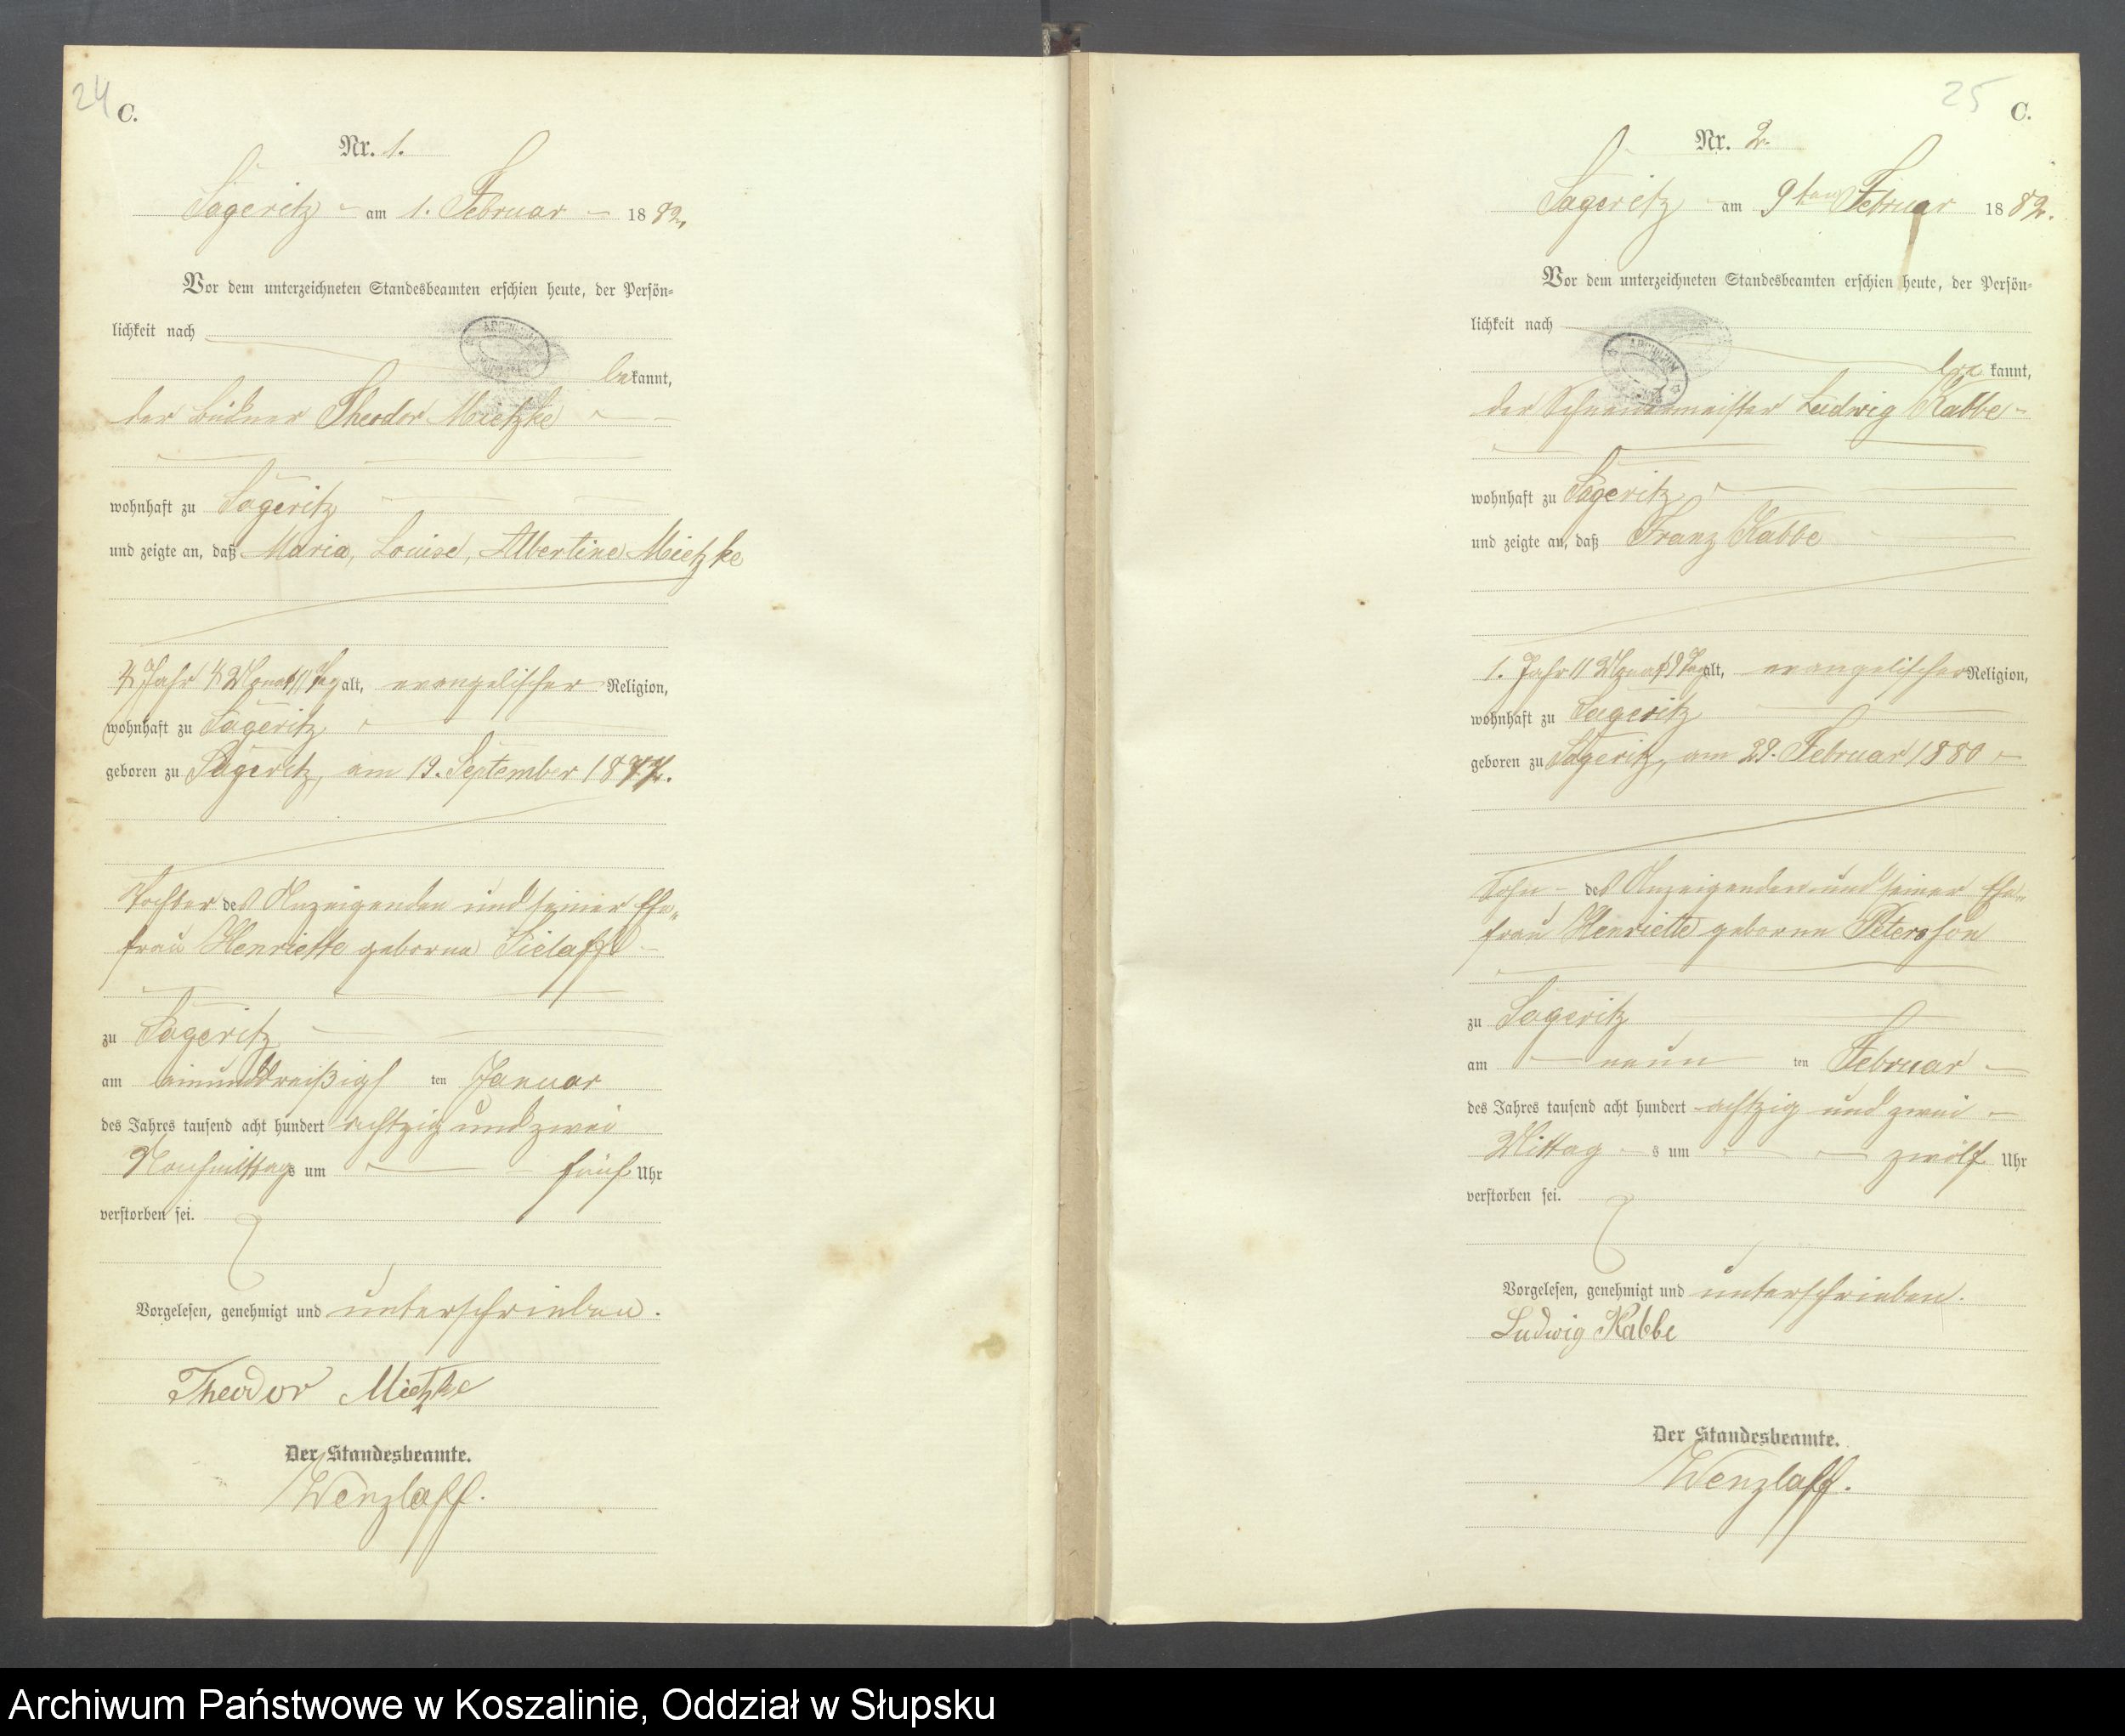 24
C.
Nr. 1.
Sageritz am 1. Februar 1882.
Vor dem unterzeichneten Standesbeamten erschien heute, der Persön-
lichkeit nach
bekannt,
der Büdner Theodor Mietzke
wohnhaft zu Sageritz
und zeigte an, daß Maria, Louise, Albertine Mietzke
4 Jahr 4 Monat 11 Tag alt, evangelischer Religion,
wohnhaft zu Sageritz
geboren zu Sageritz, am 19. September 1877.
Tochter des Anzeigenden und seiner Ehe-
frau Henriette geborne Sielaff
zu Sageritz
am einunddreißigs ten Januar
des Jahres tausend acht hundert achtzig und zwei
Nachmittags um fünf Uhr
verstorben sei.
Vorgelesen, genehmigt und unterschrieben.
Theodor Mietzke
Der Standesbeamte.
Wenzlaff.
25
C.
Nr. 2.
Sageritz am 9ten Februar 1882.
Vor dem unterzeichneten Standesbeamten erschien heute, der Persön-
lichkeit nach
bekannt,
der Ludwig Kabbe
wohnhaft zu Sageritz
und zeigte an, daß Franz Kabbe
1. Jahr 11 Monat 9 Tag alt, evangelischer Religion,
wohnhaft zu Sageritz
geboren zu Sageritz, am 29. Februar 1880
Sohn des Anzeigenden und seiner Ehe-
frau Henriette geborne Petersson
zu Sageritz
am neun ten Februar
des Jahres tausend acht hundert achtzig und zwei
Mittag s um zwölf Uhr
verstorben sei.
Vorgelesen, genehmigt und unterschrieben.
Ludwig Kabbe
Der Standesbeamte.
Wenzlaff.
Archiwum Państwowe w Koszalinie, Oddział w Słupsku